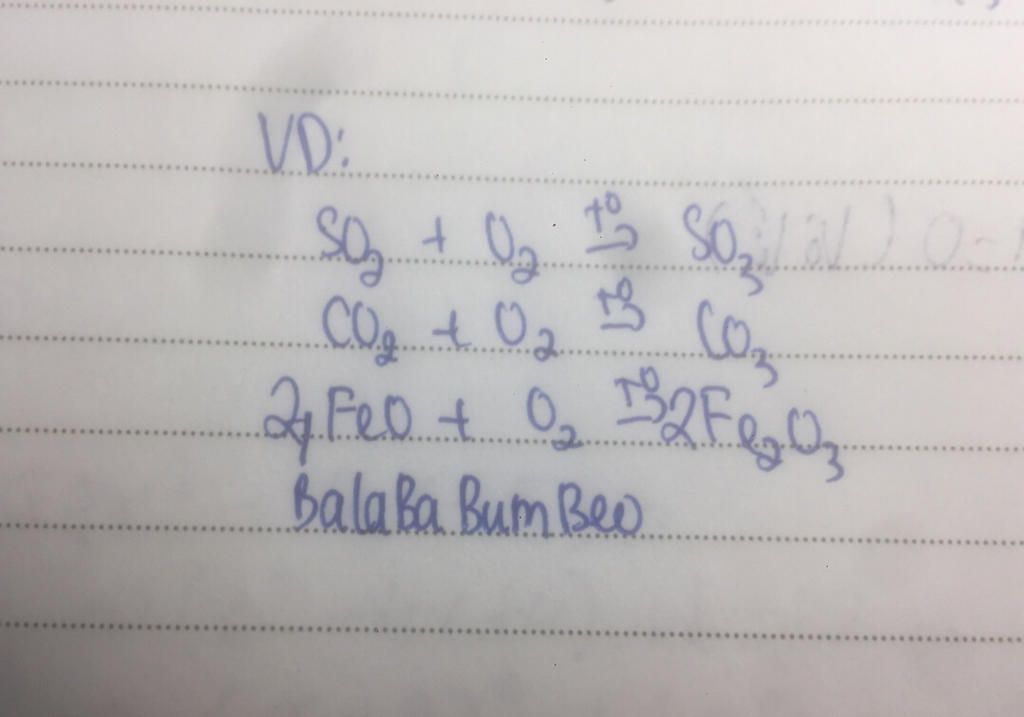 VD:
SO₂ + O₂ t° → SO₃
CO₂ + O₂ t° → CO₃
4FeO + O₂ t° → 2Fe₂O₃
BalaBa BumBeo